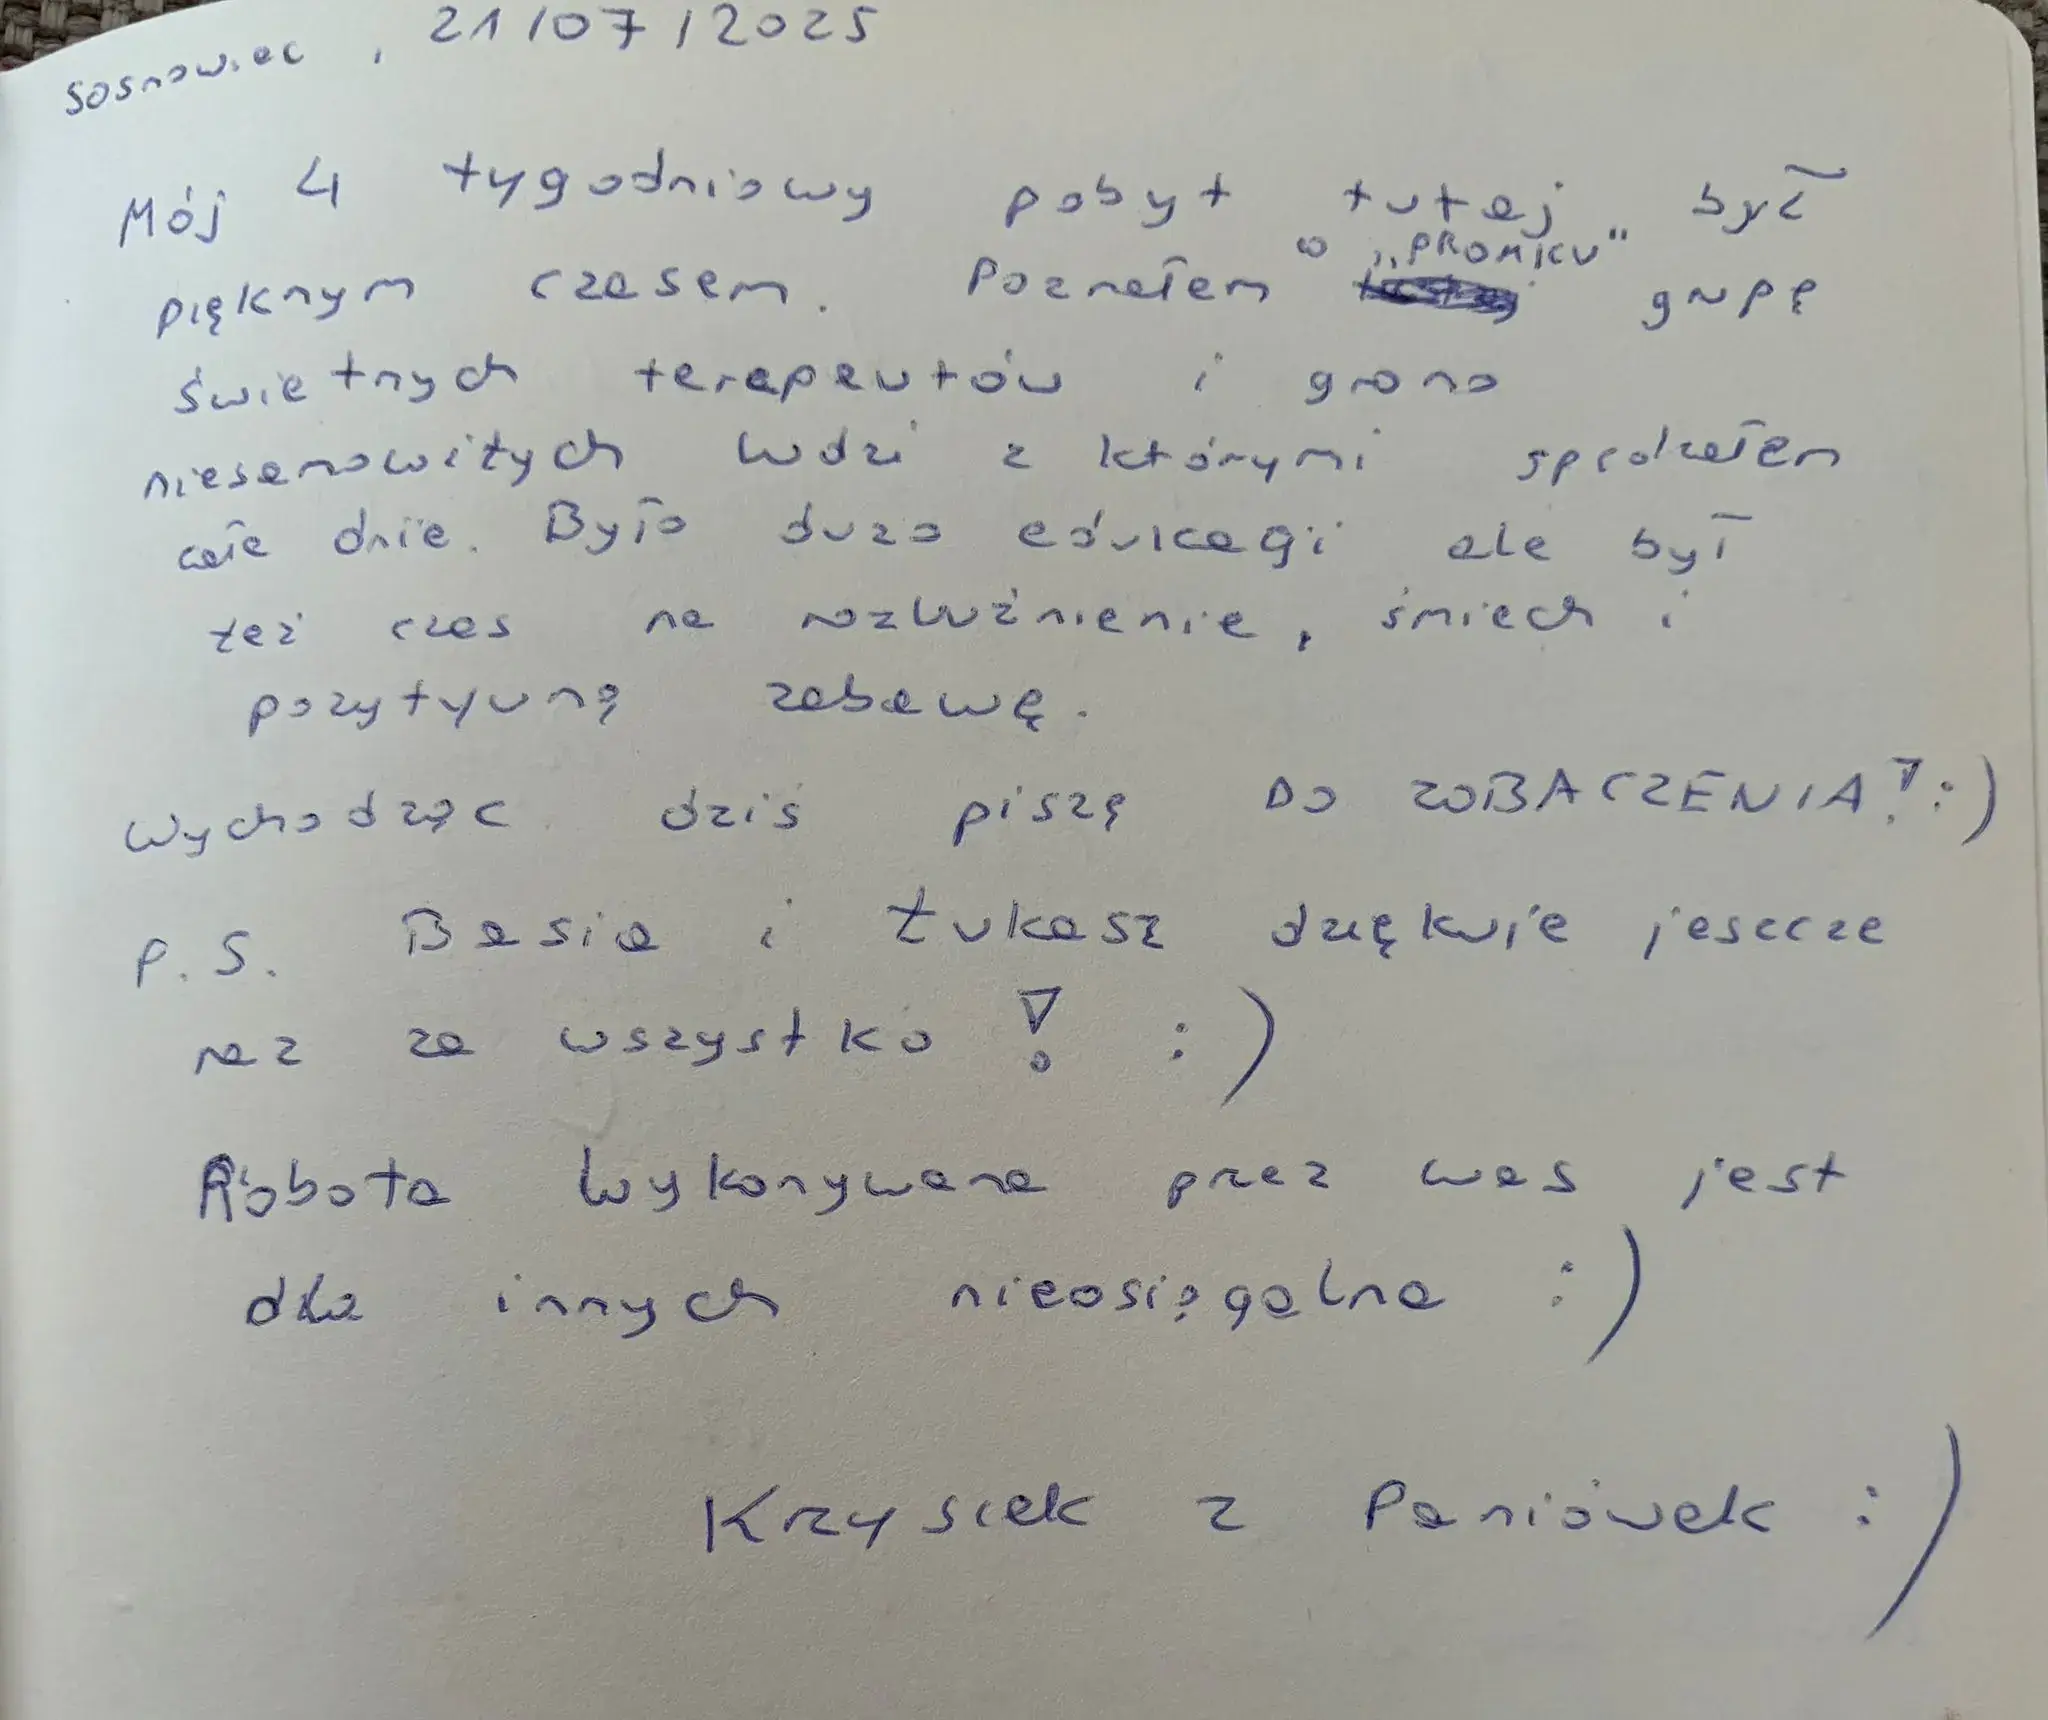 Sosnowiec, 21/07/2025
Mój 4 tygodniowy pobyt tutaj był
pięknym czasem. Poznałem w „PROMIKU" grupę
świetnych terapeutów i grono
niesamowitych ludzi z którymi spędzałem
całe dnie. Było dużo edukacji ale był
też czas na rozluźnienie, śmiech i
pozytywną zabawę.
Wychodząc dziś piszę DO ZOBACZENIA! :)
P.S. Basia i Łukasz dziękuje jeszcze
raz za wszystko! :)
Robota wykonywana przez was jest
dla innych nieosiągalna :)
Krzysiek z Paniówek :)